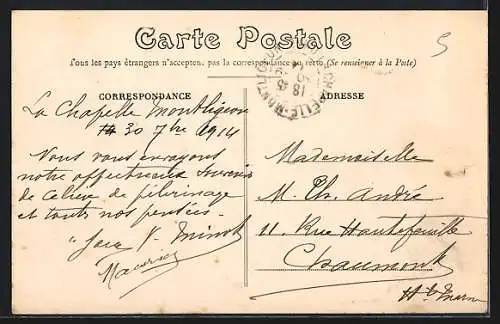 Carte Postale
Tous les pays étrangers n'acceptent pas la correspondance au recto (Se renseigner à la Poste)
CORRESPONDANCE
La Chapelle Montligeon
30 7bre 1914
Nous vous envoyons
notre affectueux souvenir
de ce lieu de pèlerinage
et toutes nos pensées.
ADRESSE
Mademoiselle
M. Th. André
11 Rue Hautefeuille
Chaumont
Hte Marne
5